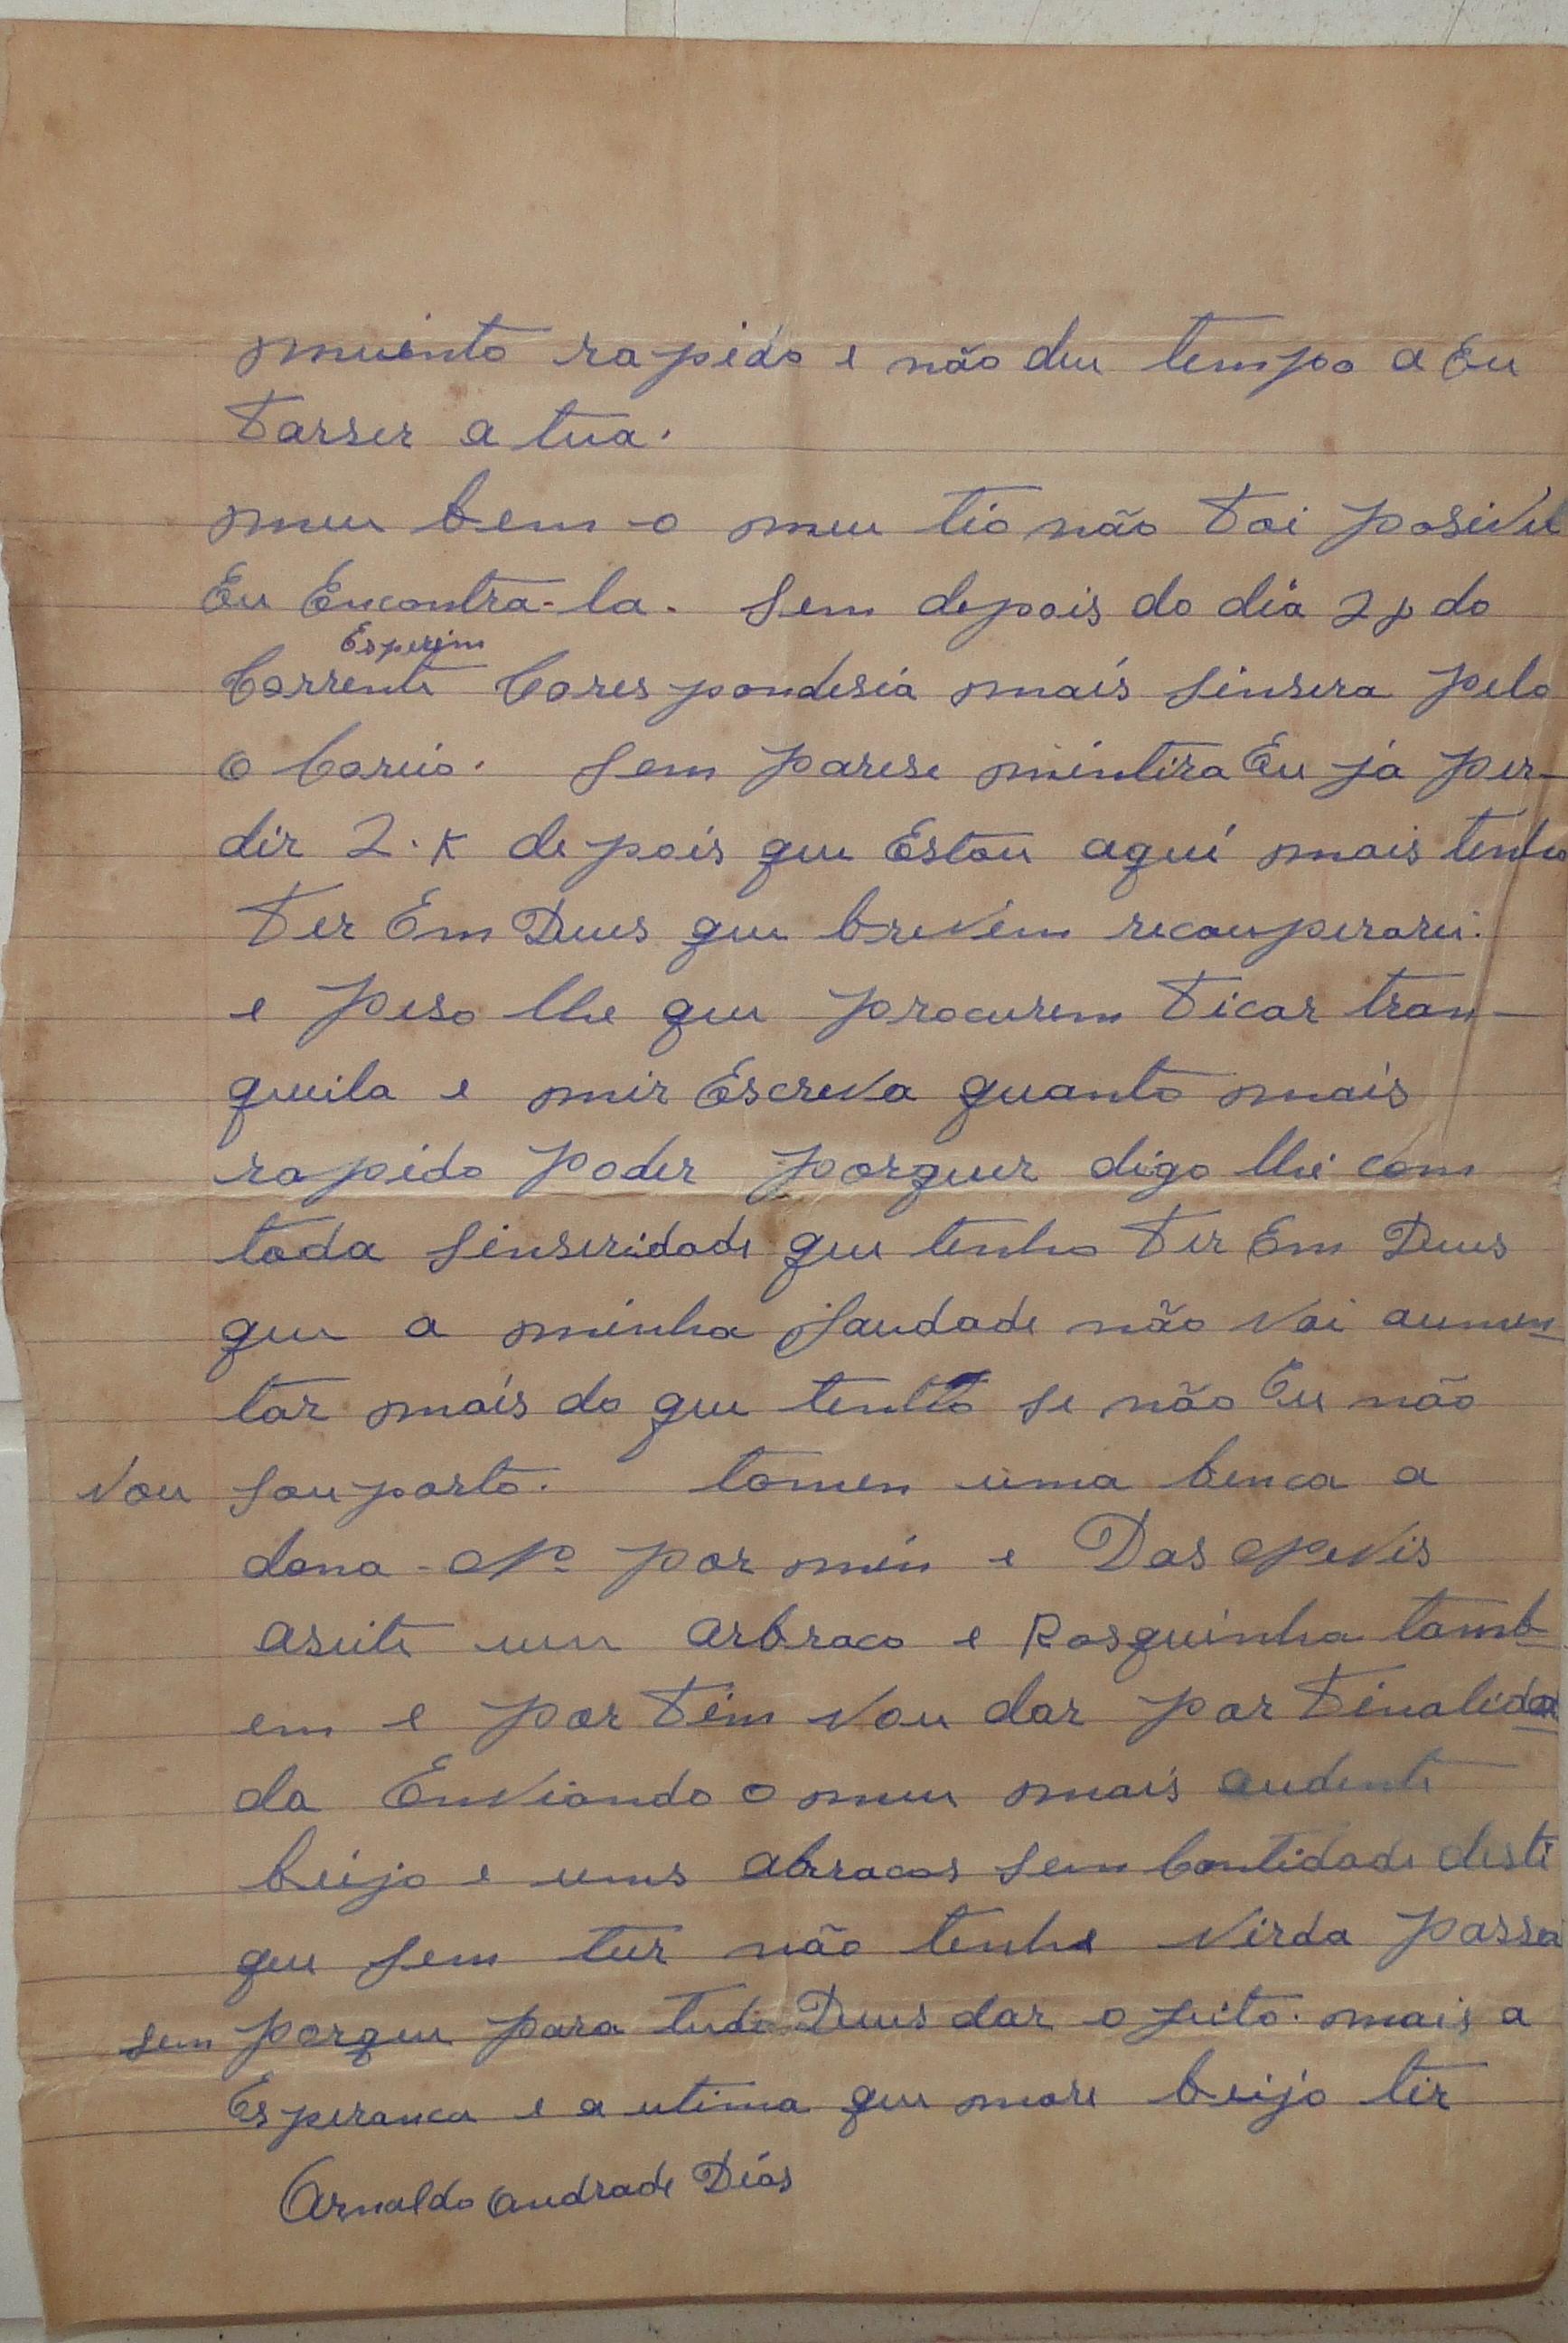 muinto rapido e não deu tempo a Eu
Fasser a tua.
meu bem o meu tio não Foi posivel
Eu Encontra-la. Sem depois do dia do
Esperim
Corrente Corespondesia mais sinsera pelo
o Coreio. Sem parese mintira Eu já per-
dir 2.K depois que Estou aqui mais tenho
Fer Em Deus que brevem recouperarei.
e peso lhe que procurem Ficar tran-
quila e mir Escreva quanto mais
rapido poder porquer digo lhe com
toda sinseridade que tenho Fer Em Deus
que a minha Saudade não vai aumen
tar mais do que tenho se não Eu não
vou souporto. tomen uma benca a
dona por min e Das
aseite um arbraco e Rosquinha tamb
em e por Fim vou dar por Finalida
da Enviando o meu mais audente
beijo e ums abracos sem Cantidade deste
que sem ter não tenhe virda passa
sem porque para tudo Deus dar o jeito. mais a
Esperanca e a utima que more beijo tir
Arnaldo Andrade Dias